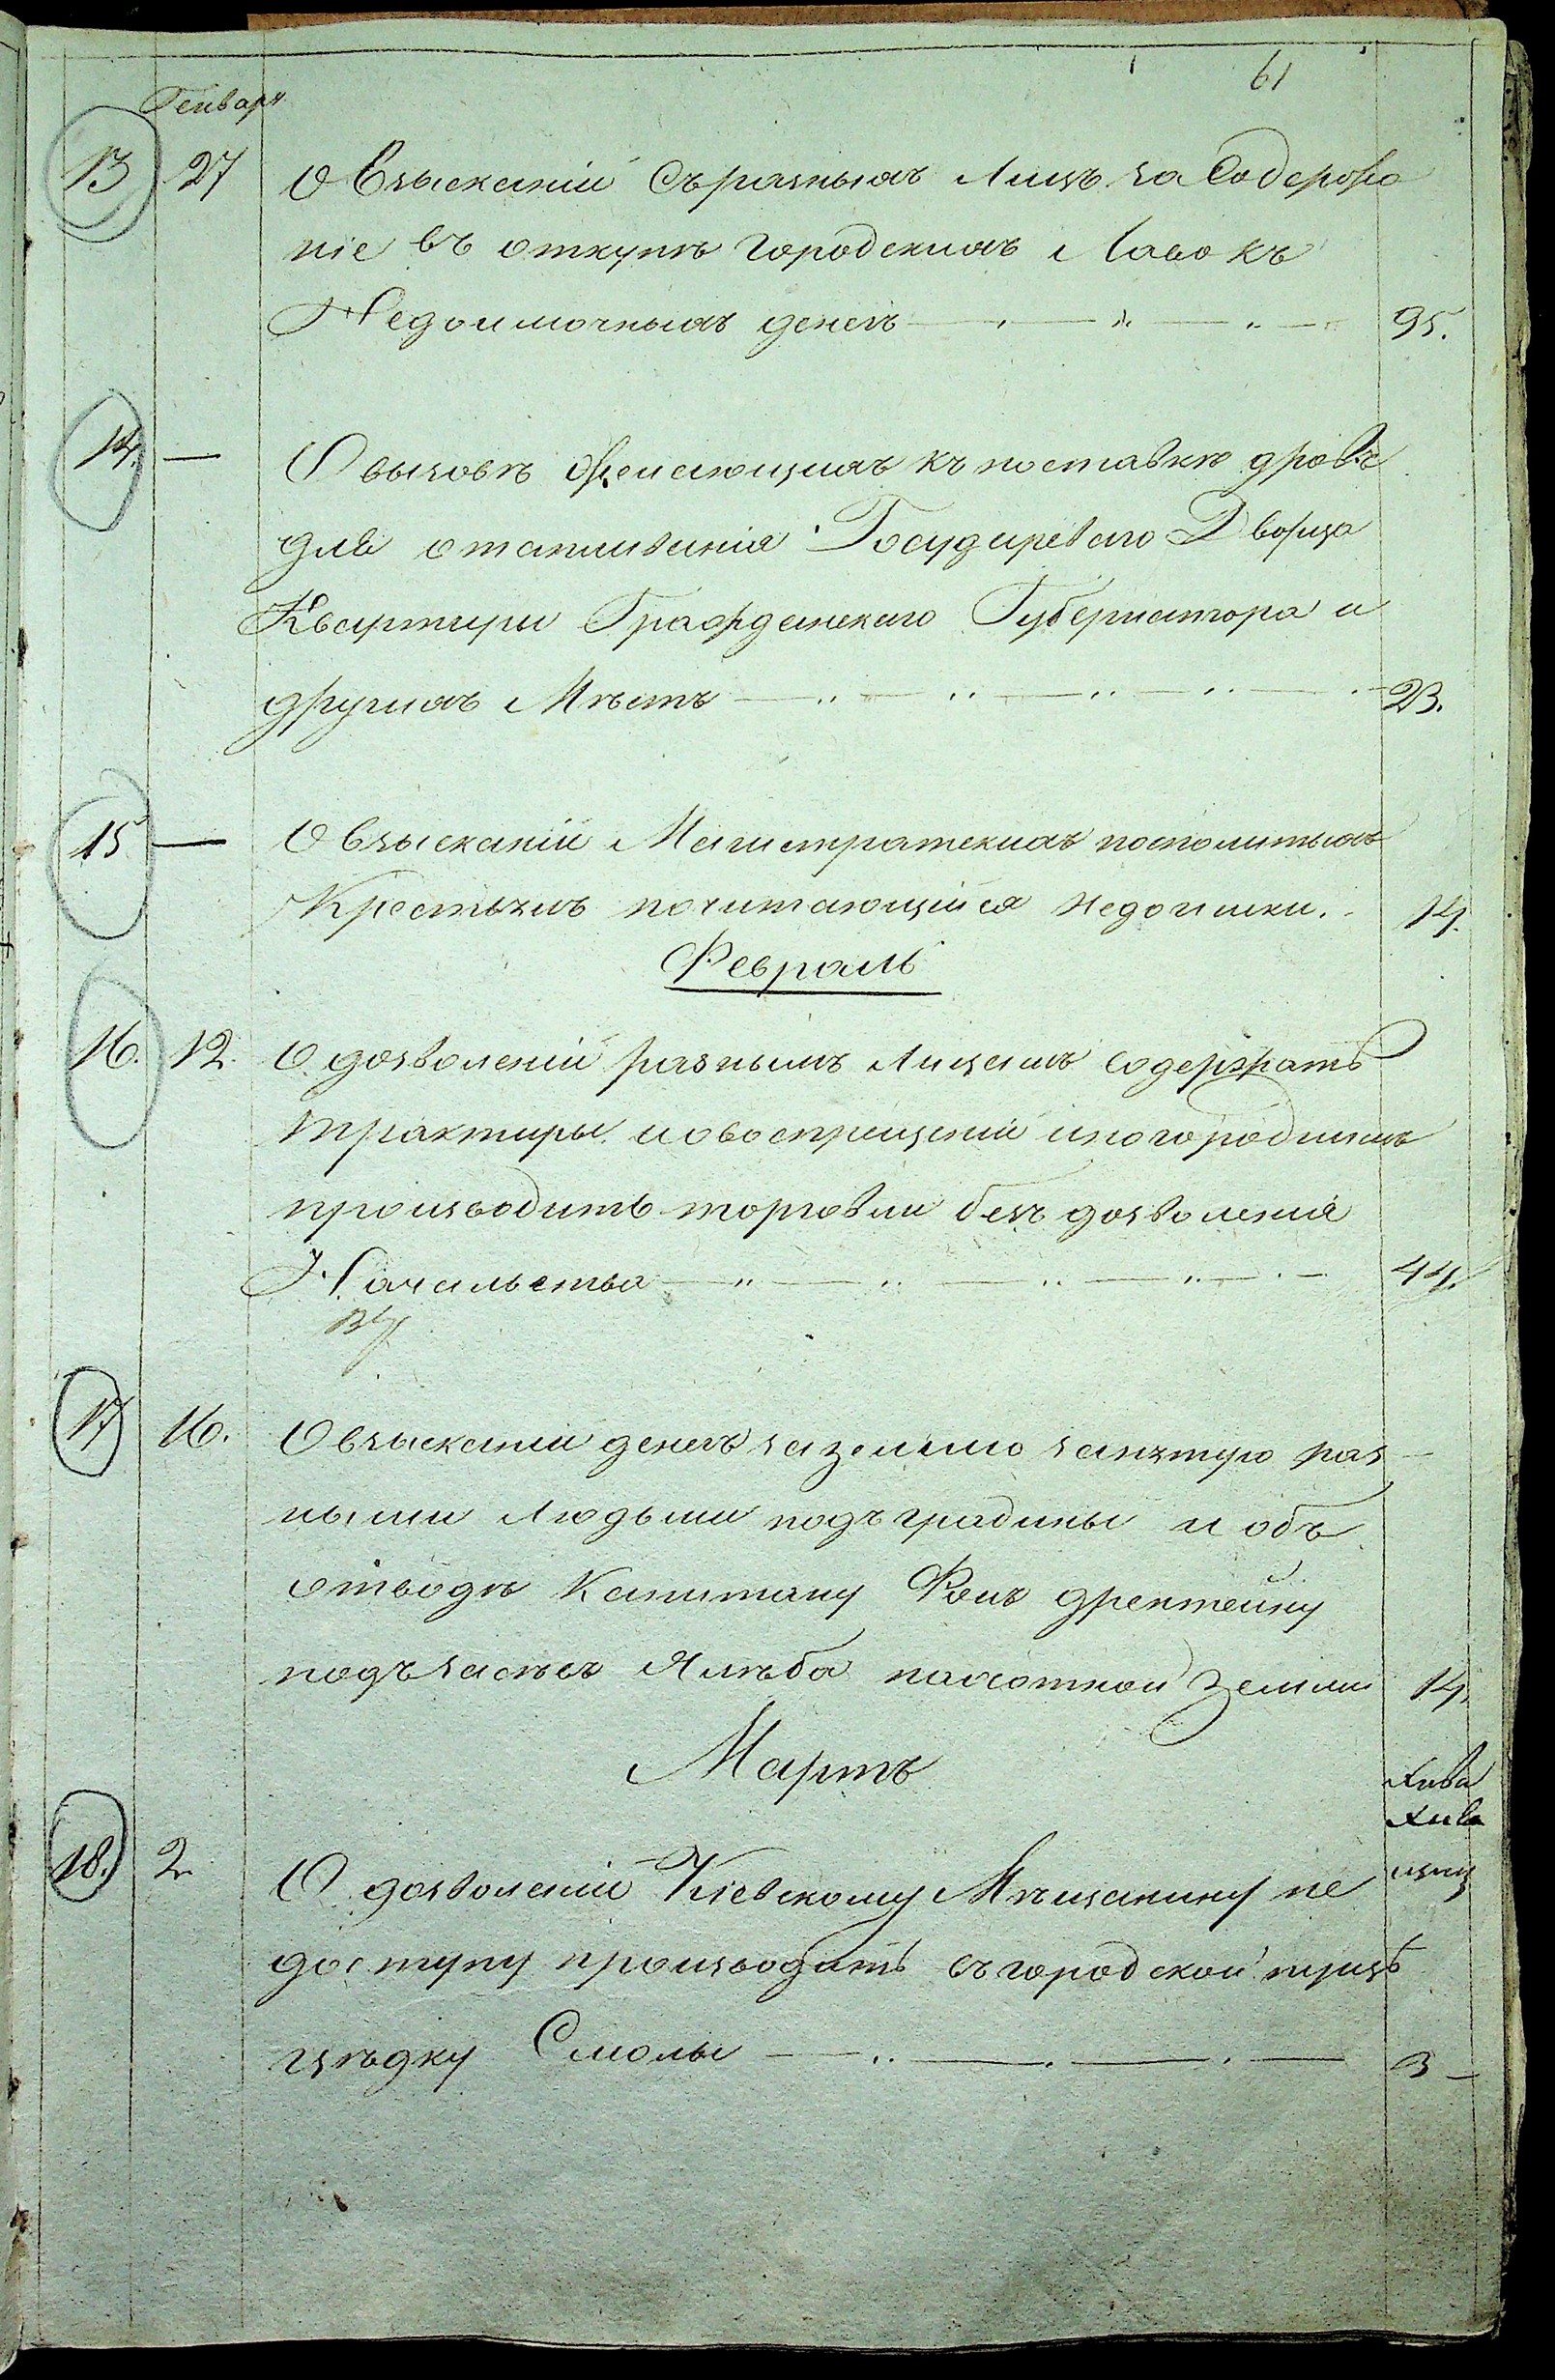 61
Генваря
13 27 О взысканіи съ разныхъ Лицъ за Содержа
ніе въ откупѣ городскихъ Лавокъ
Недоимочныхъ денегъ 95.
14. — О вызовѣ желающихъ къ поставкѣ дровъ
для отапливанія Государеваго Дворца
Квартиры Гражданскаго Губернатора и
другихъ Мѣстъ 23.
15 — О взысканіи Магистратскихъ посполитыхъ
Крестьянъ почитающійся недоимки. 14.
Февраль
16. 12. О дозволеніи разнымъ Лицамъ содержать
трактиры и о воспрещеніи иногороднимъ
производить торговли безъ дозволенія
Начальства 44.
17 16. О взысканіи денегъ за землю занятую раз
ными людьми подъ градины и объ
отводѣ Капитану Фонъ
подъ засѣвъ Хлѣба пахотной Земли 14.
Мартъ
18. 2 О дозволеніи Кіевскому Мѣщанину не
доступу производить въ городской
цѣдку Смолы 3 —